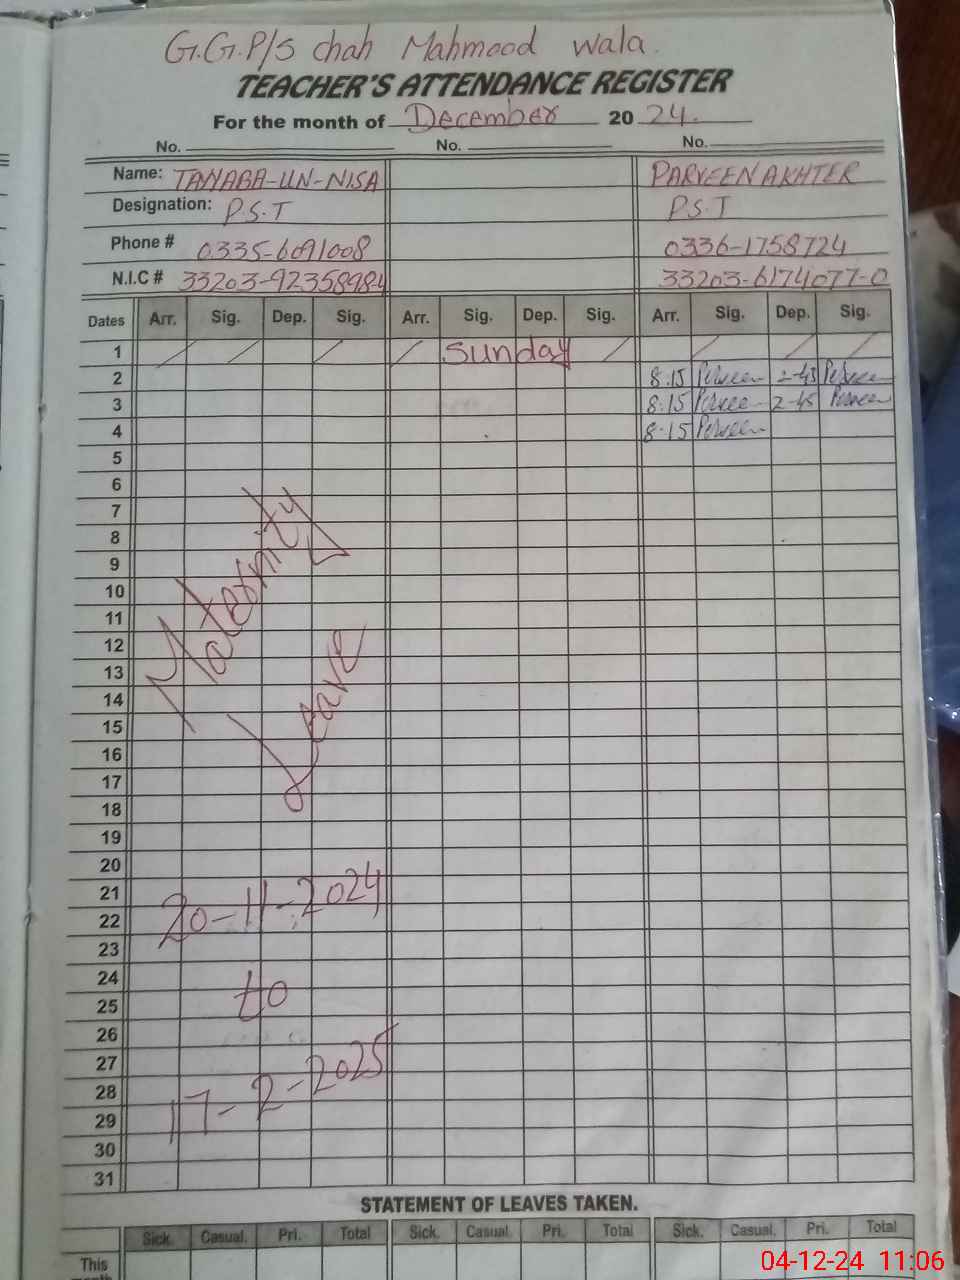 G.G.P/S chah Mahmood wala.
TEACHER'S ATTENDANCE REGISTER
For the month of December 20 24.
No. No. No.
Name: TANABA-UN-NISA PARVEEN AKHTER
Designation: P.S.T P.S.T
Phone # 0335-6091008 0336-1758724
N.I.C # 33203-9235898-4 33203-6174077-0
Dates Arr. Sig. Dep. Sig. Arr. Sig. Dep. Sig. Arr. Sig. Dep. Sig.
1 Sunday
2 8:15 Perveen 2-45 Perveen
3 8:15 Perveen 2-45 Perveen
4 8-15 Perveen
5
6
7
8
9
10
11
12
13
14
15
16
17
18
19
20
21
22
23
24
25
26
27
28
29
30
31
Maternity
Leave
20-11-2024
to
17-2-2025
STATEMENT OF LEAVES TAKEN.
Sick. Casual. Pri. Total Sick. Casual. Pri. Total Sick. Casual. Pri. Total
This
month
04-12-24 11:06